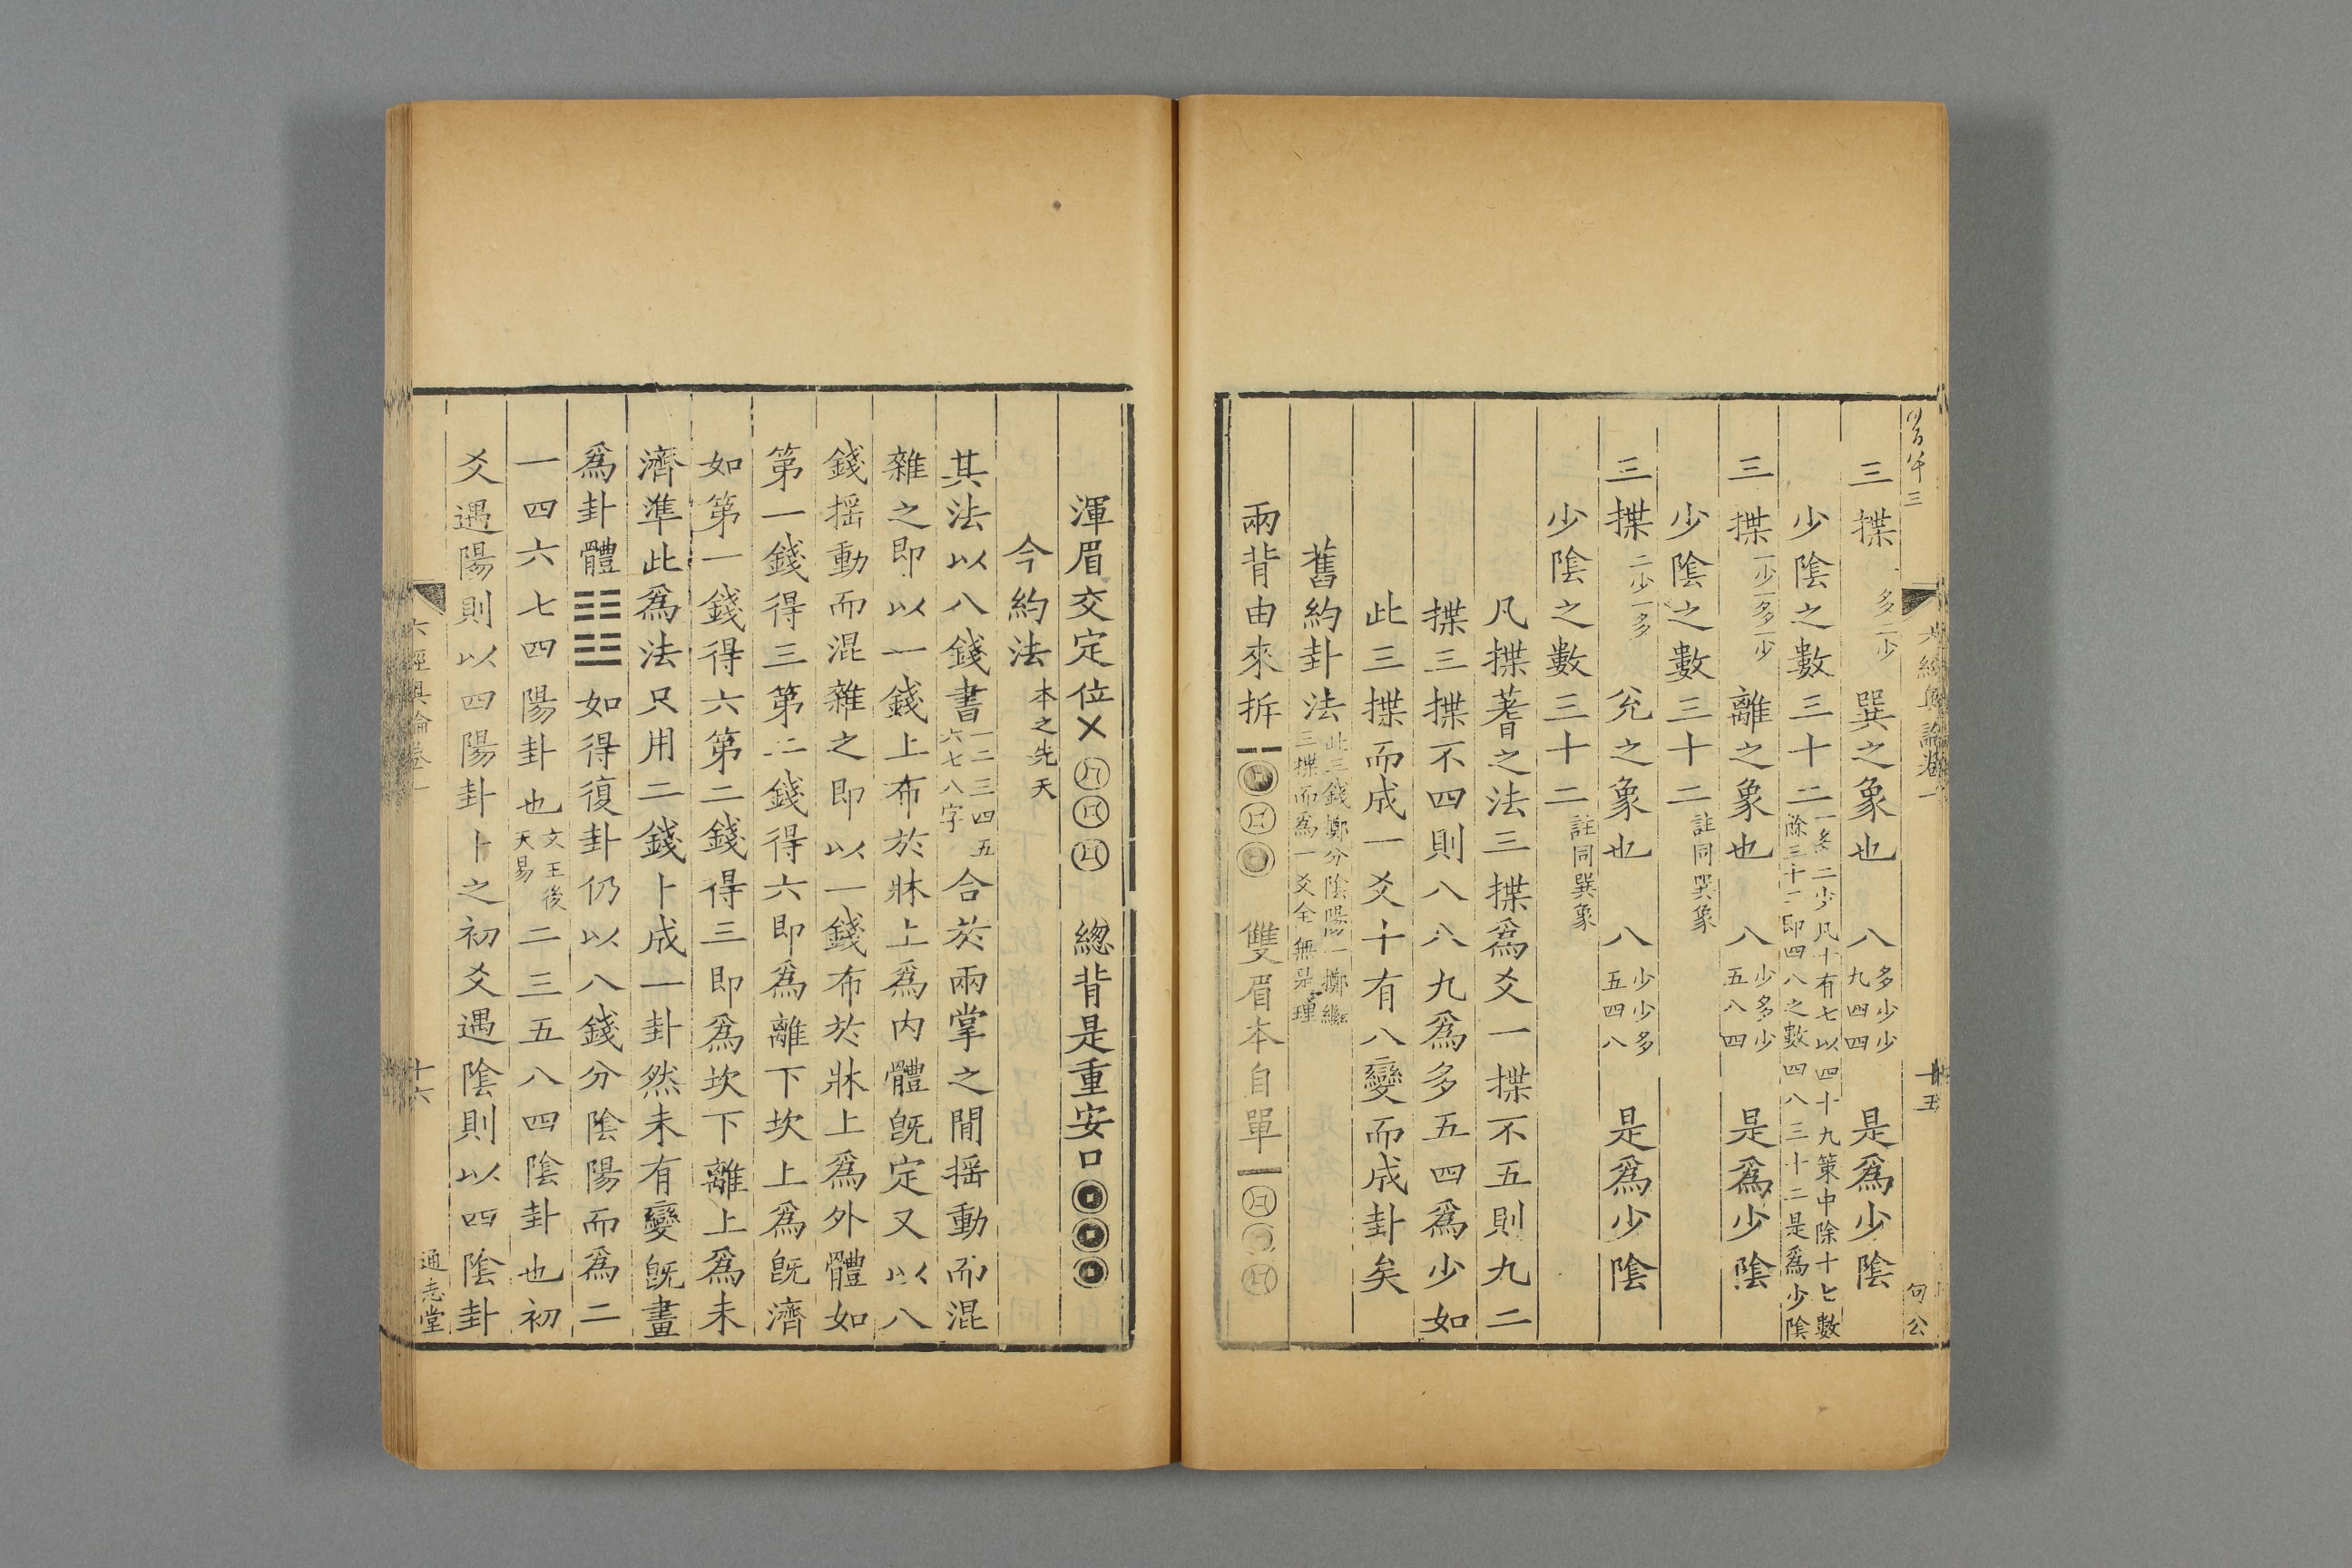 三揲一多二少巽之象也八多少少九四四是爲少陰
少陰之數三十二一多二少凡十有七以四十九策中除十七數除三十二即四八之數四八三十二是爲少陰
三揲一少一多一少離之象也八少多少五八四是爲少陰
少陰之數三十二註同巽象
三揲二少一多兊之象也八少少多五四八是爲少陰
少陰之數三十二註同巽象
凡揲蓍之法三揲爲爻一揲不五則九二
揲三揲不四則八八九爲多五四爲少如
此三揲而成一爻十有八變而成卦矣
舊約卦法此三錢擲分陰陽一擲繼三揲而爲一爻全無是理
兩背由來拆雙眉本自單
六經奧論卷一
十五
渾眉交定位總背是重安口
今約法本之先天
其法以八錢書一二三四五六七八字合於兩掌之間揺動而混
雜之即以一錢上布於牀上爲内體旣定又以八
錢揺動而混雜之即以一錢布於牀上爲外體如
第一錢得三第二錢得六即爲離下坎上爲旣濟
如第一錢得六第二錢得三即爲坎下離上爲未
濟準此爲法只用二錢卜成一卦然未有變旣畫
爲卦體䷗如得復卦仍以八錢分陰陽而爲二
一四六七四陽卦也文王後天易二三五八四陰卦也初
爻遇陽則以四陽卦卜之初爻遇陰則以四陰卦
六經奧論卷一
十六
通志堂